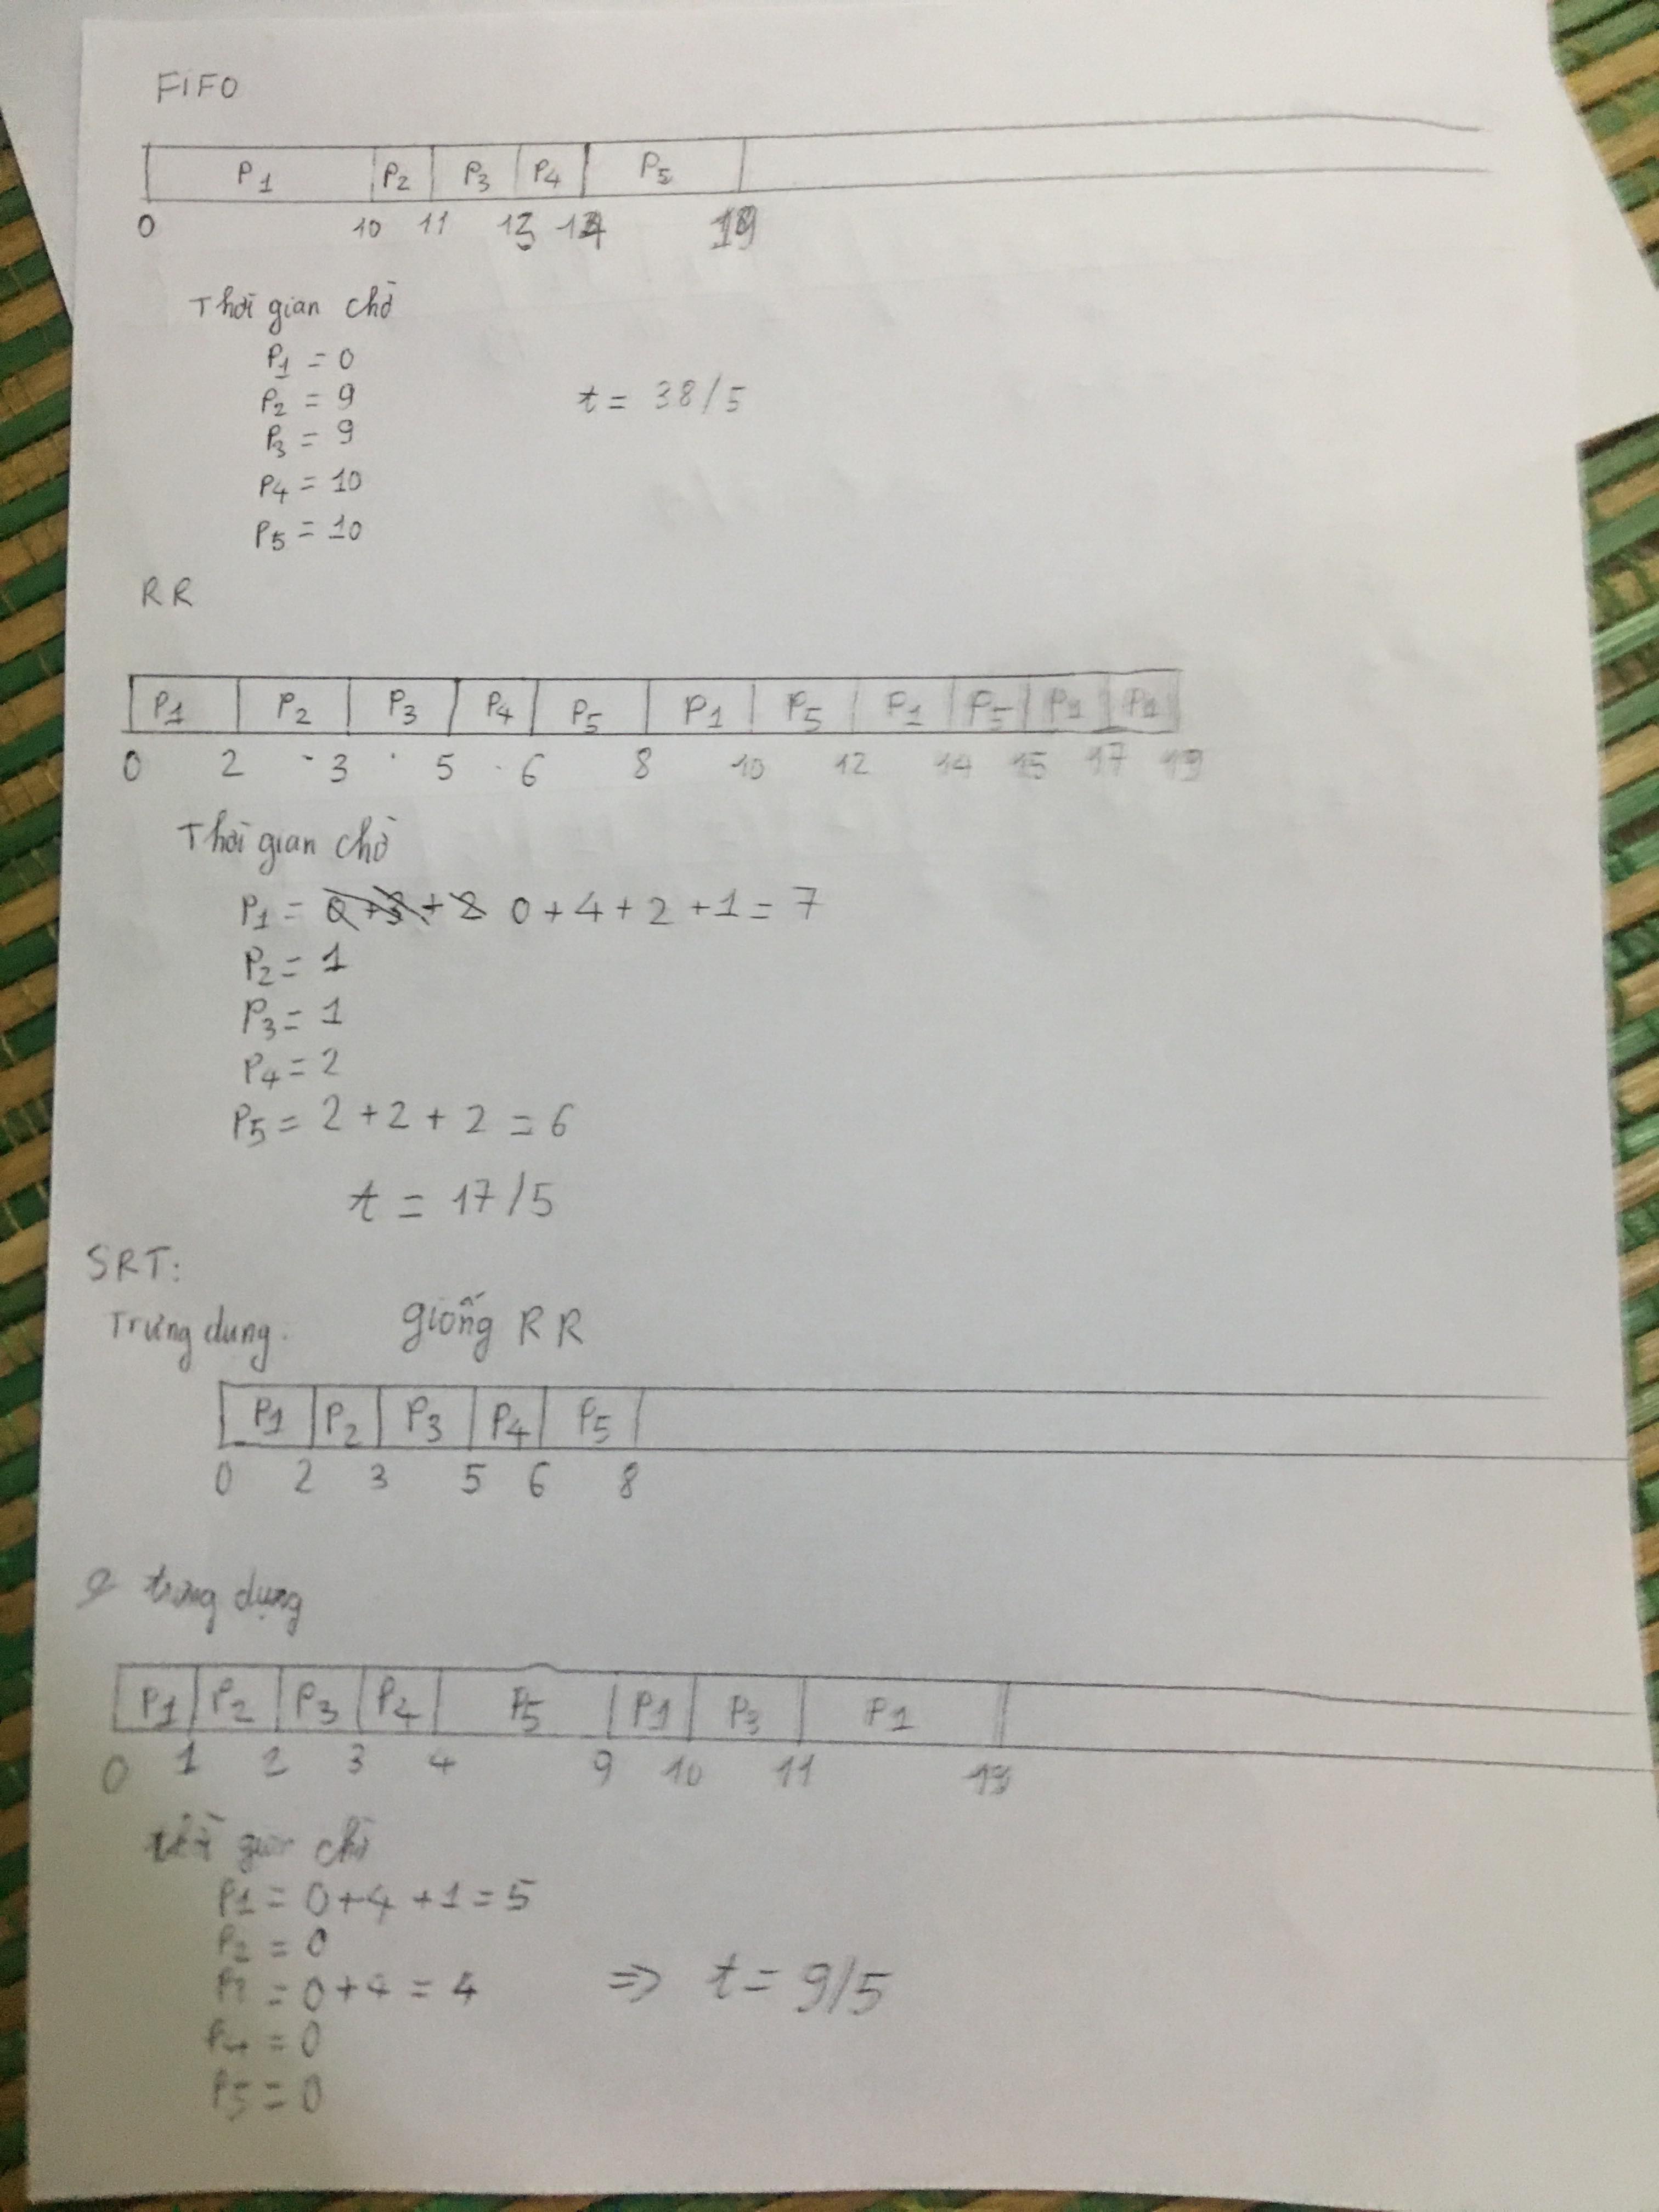 FIFO
P1 P2 P3 P4 P5
0 10 11 13 14 19
Thời gian chờ
P1 = 0
P2 = 9
t = 38/5
P3 = 9
P4 = 10
P5 = 10
RR
P1 P2 P3 P4 P5 P1 P5 P1 P5 P1 P1
0 2 3 5 6 8 10 12 14 15 17 19
Thời gian chờ
P1 = 0 + 4 + 2 + 1 = 7
P2 = 1
P3 = 1
P4 = 2
P5 = 2 + 2 + 2 = 6
t = 17/5
SRT:
Trưng dung. giống RR
P1 P2 P3 P4 P5
0 2 3 5 6 8
trưng dụng
P1 P2 P3 P4 P5 P1 P3 P1
0 1 2 3 4 9 10 11 19
gian chờ
P1 = 0 + 4 + 1 = 5
P2 = 0
= 0 + 4 = 4
⇒ t = 9/5
P4 = 0
P5 = 0